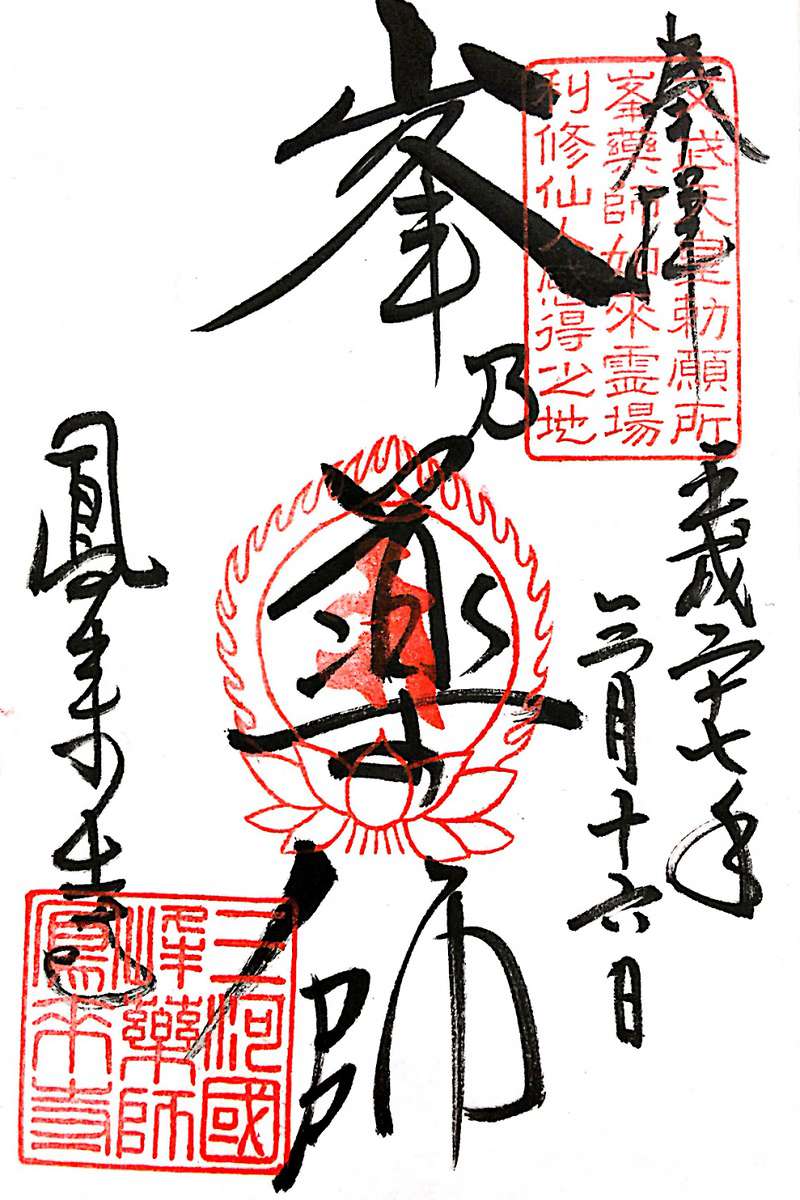 奉拝
平成二十七年
三月十六日
峯乃薬師
鳳来寺
文武天皇勅願所
峯藥師如來霊場
利修仙人感得之地
三河國
峰藥師
鳳来寺